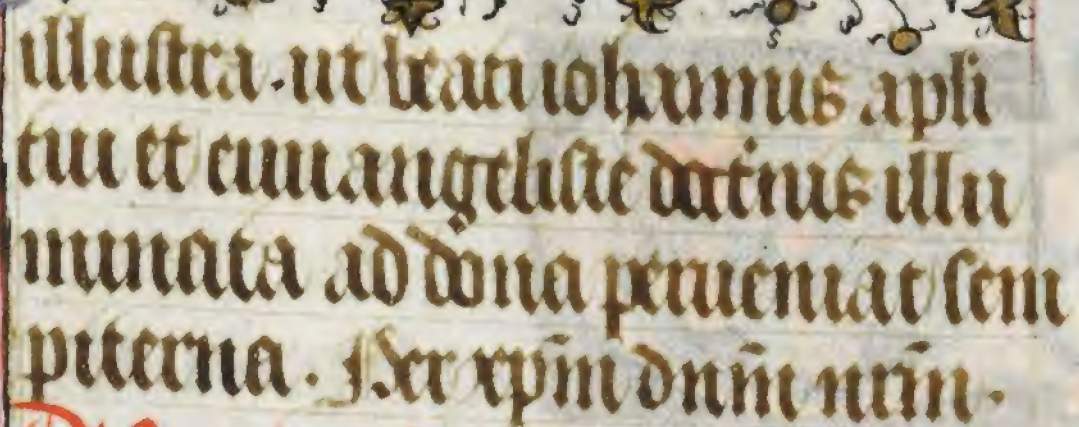 illustra. ut beati iohannis apli
tui et euuangeliste doctrinis illu
minata ad dona perueniat sem
piterna. Per xp̄m dnm̄ nrm̄.